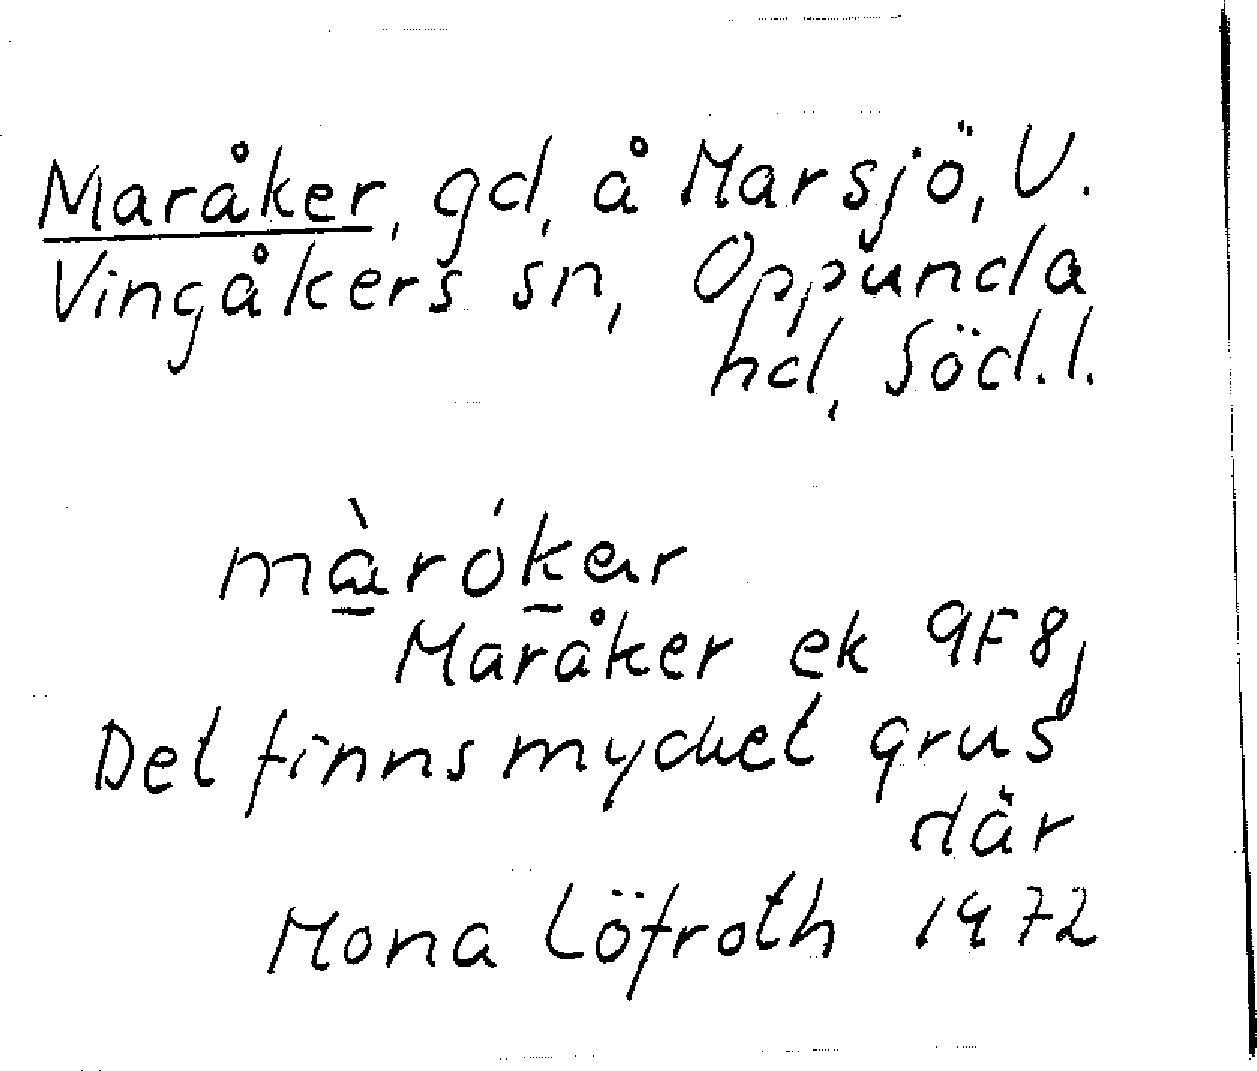 Maråker, gd, å Marsjö, V.
Vingåkers sn, Oppunda
hd, Söd.l.
màróker
Maråker ek 9F8j
Det finns mycket grus
där
Mona Löfroth 1972